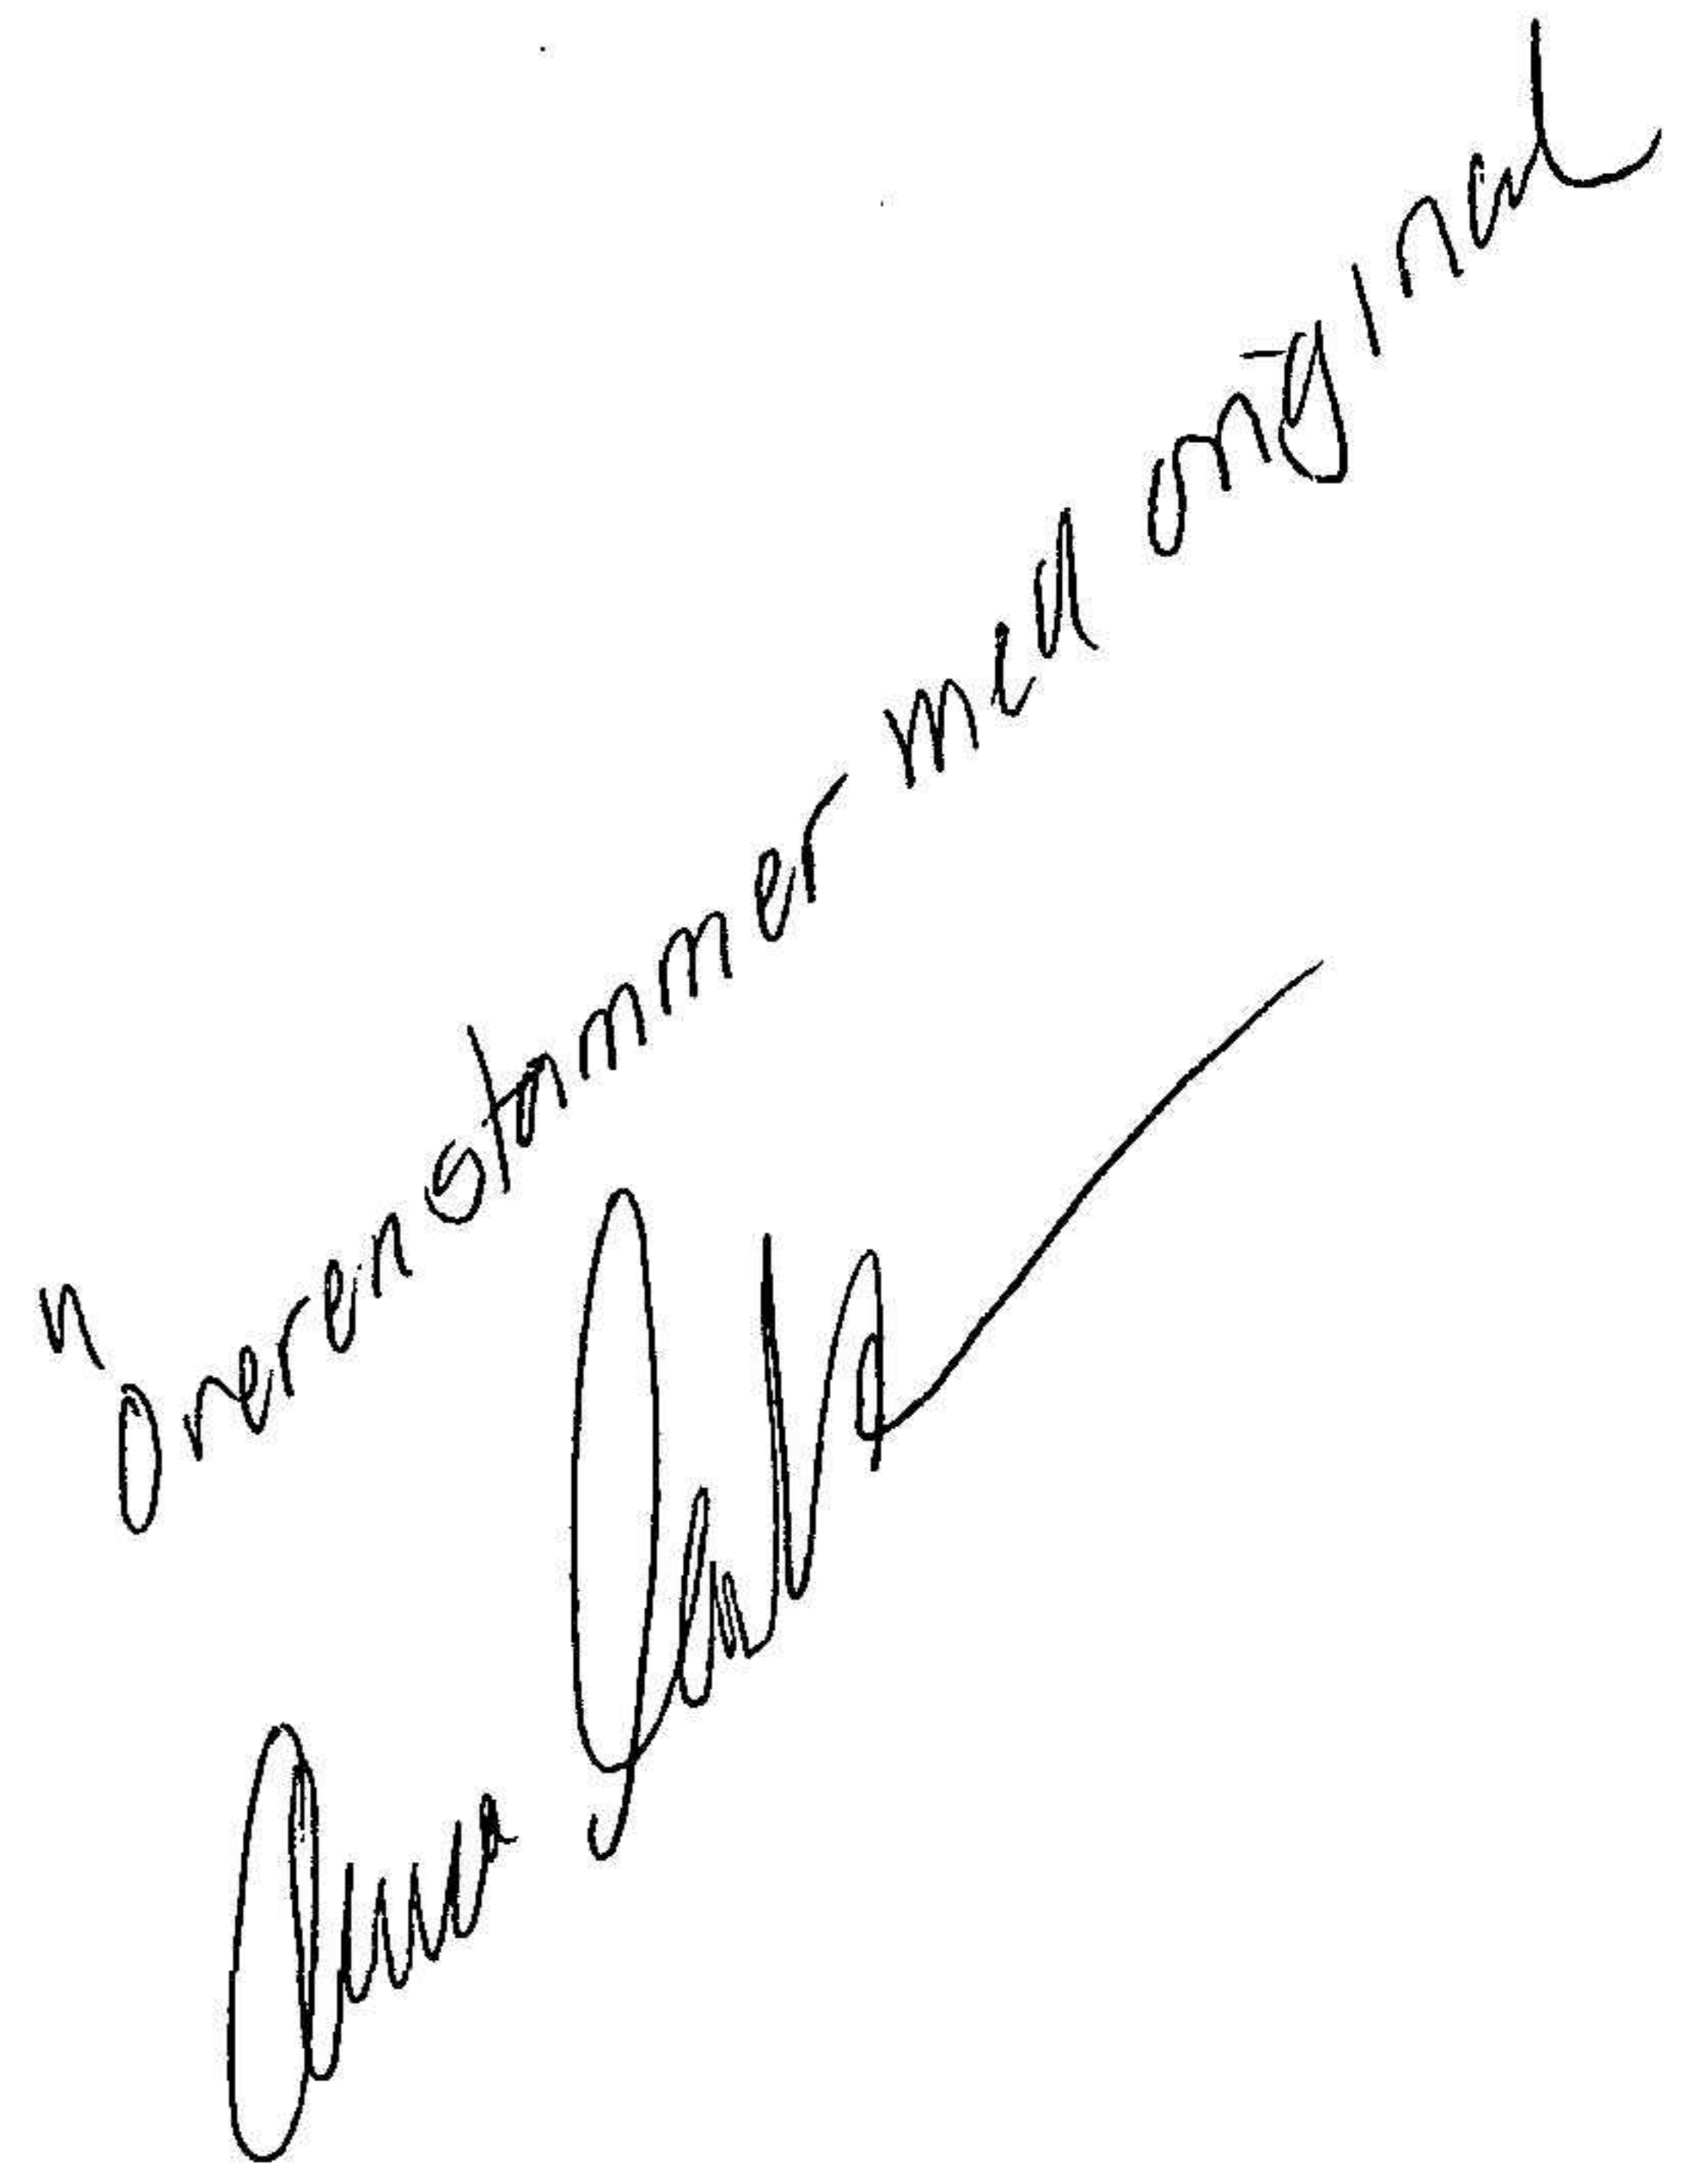 Överenstämmer med original
Anna